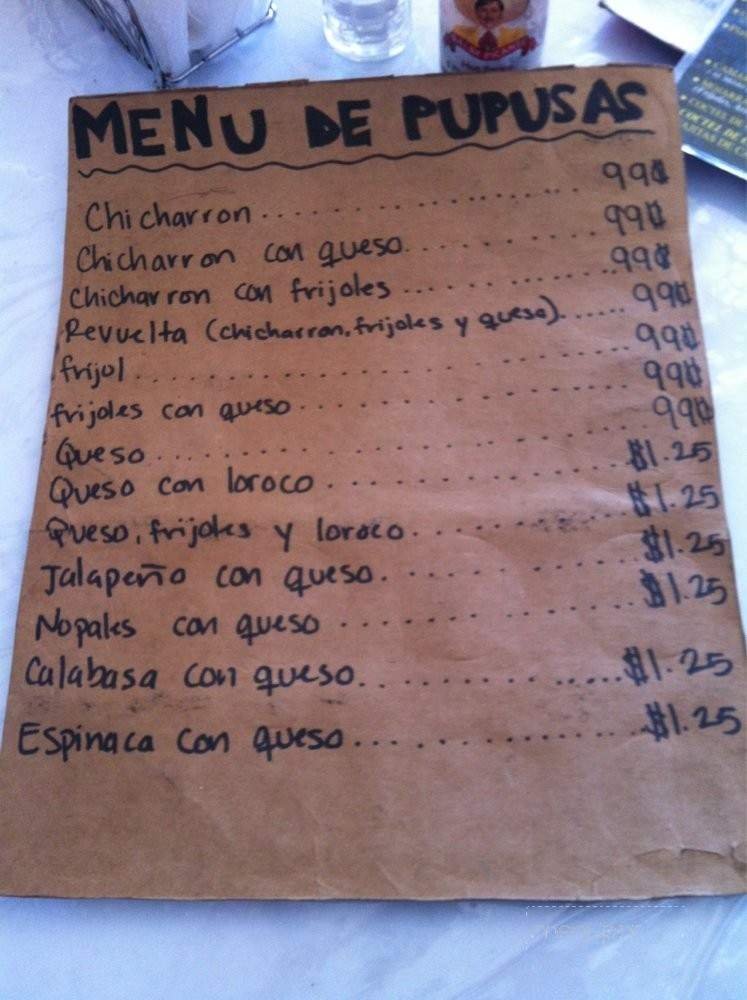 MENU DE PUPUSAS
Chicharron.................... 99¢
Chicharron con queso............ 99¢
Chicharron con frijoles............ 99¢
Revuelta (chicharron, frijoles y queso)...... 99¢
frijol........................ 99¢
frijoles con queso................ 99¢
Queso........................ 99¢
Queso con loroco................ $1.25
Queso, frijoles y loroco............ $1.25
Jalapeño con queso.............. $1.25
Nopales con queso............... $1.25
Calabasa con queso.............. $1.25
Espinaca con queso.............. $1.25
COCTEL DE